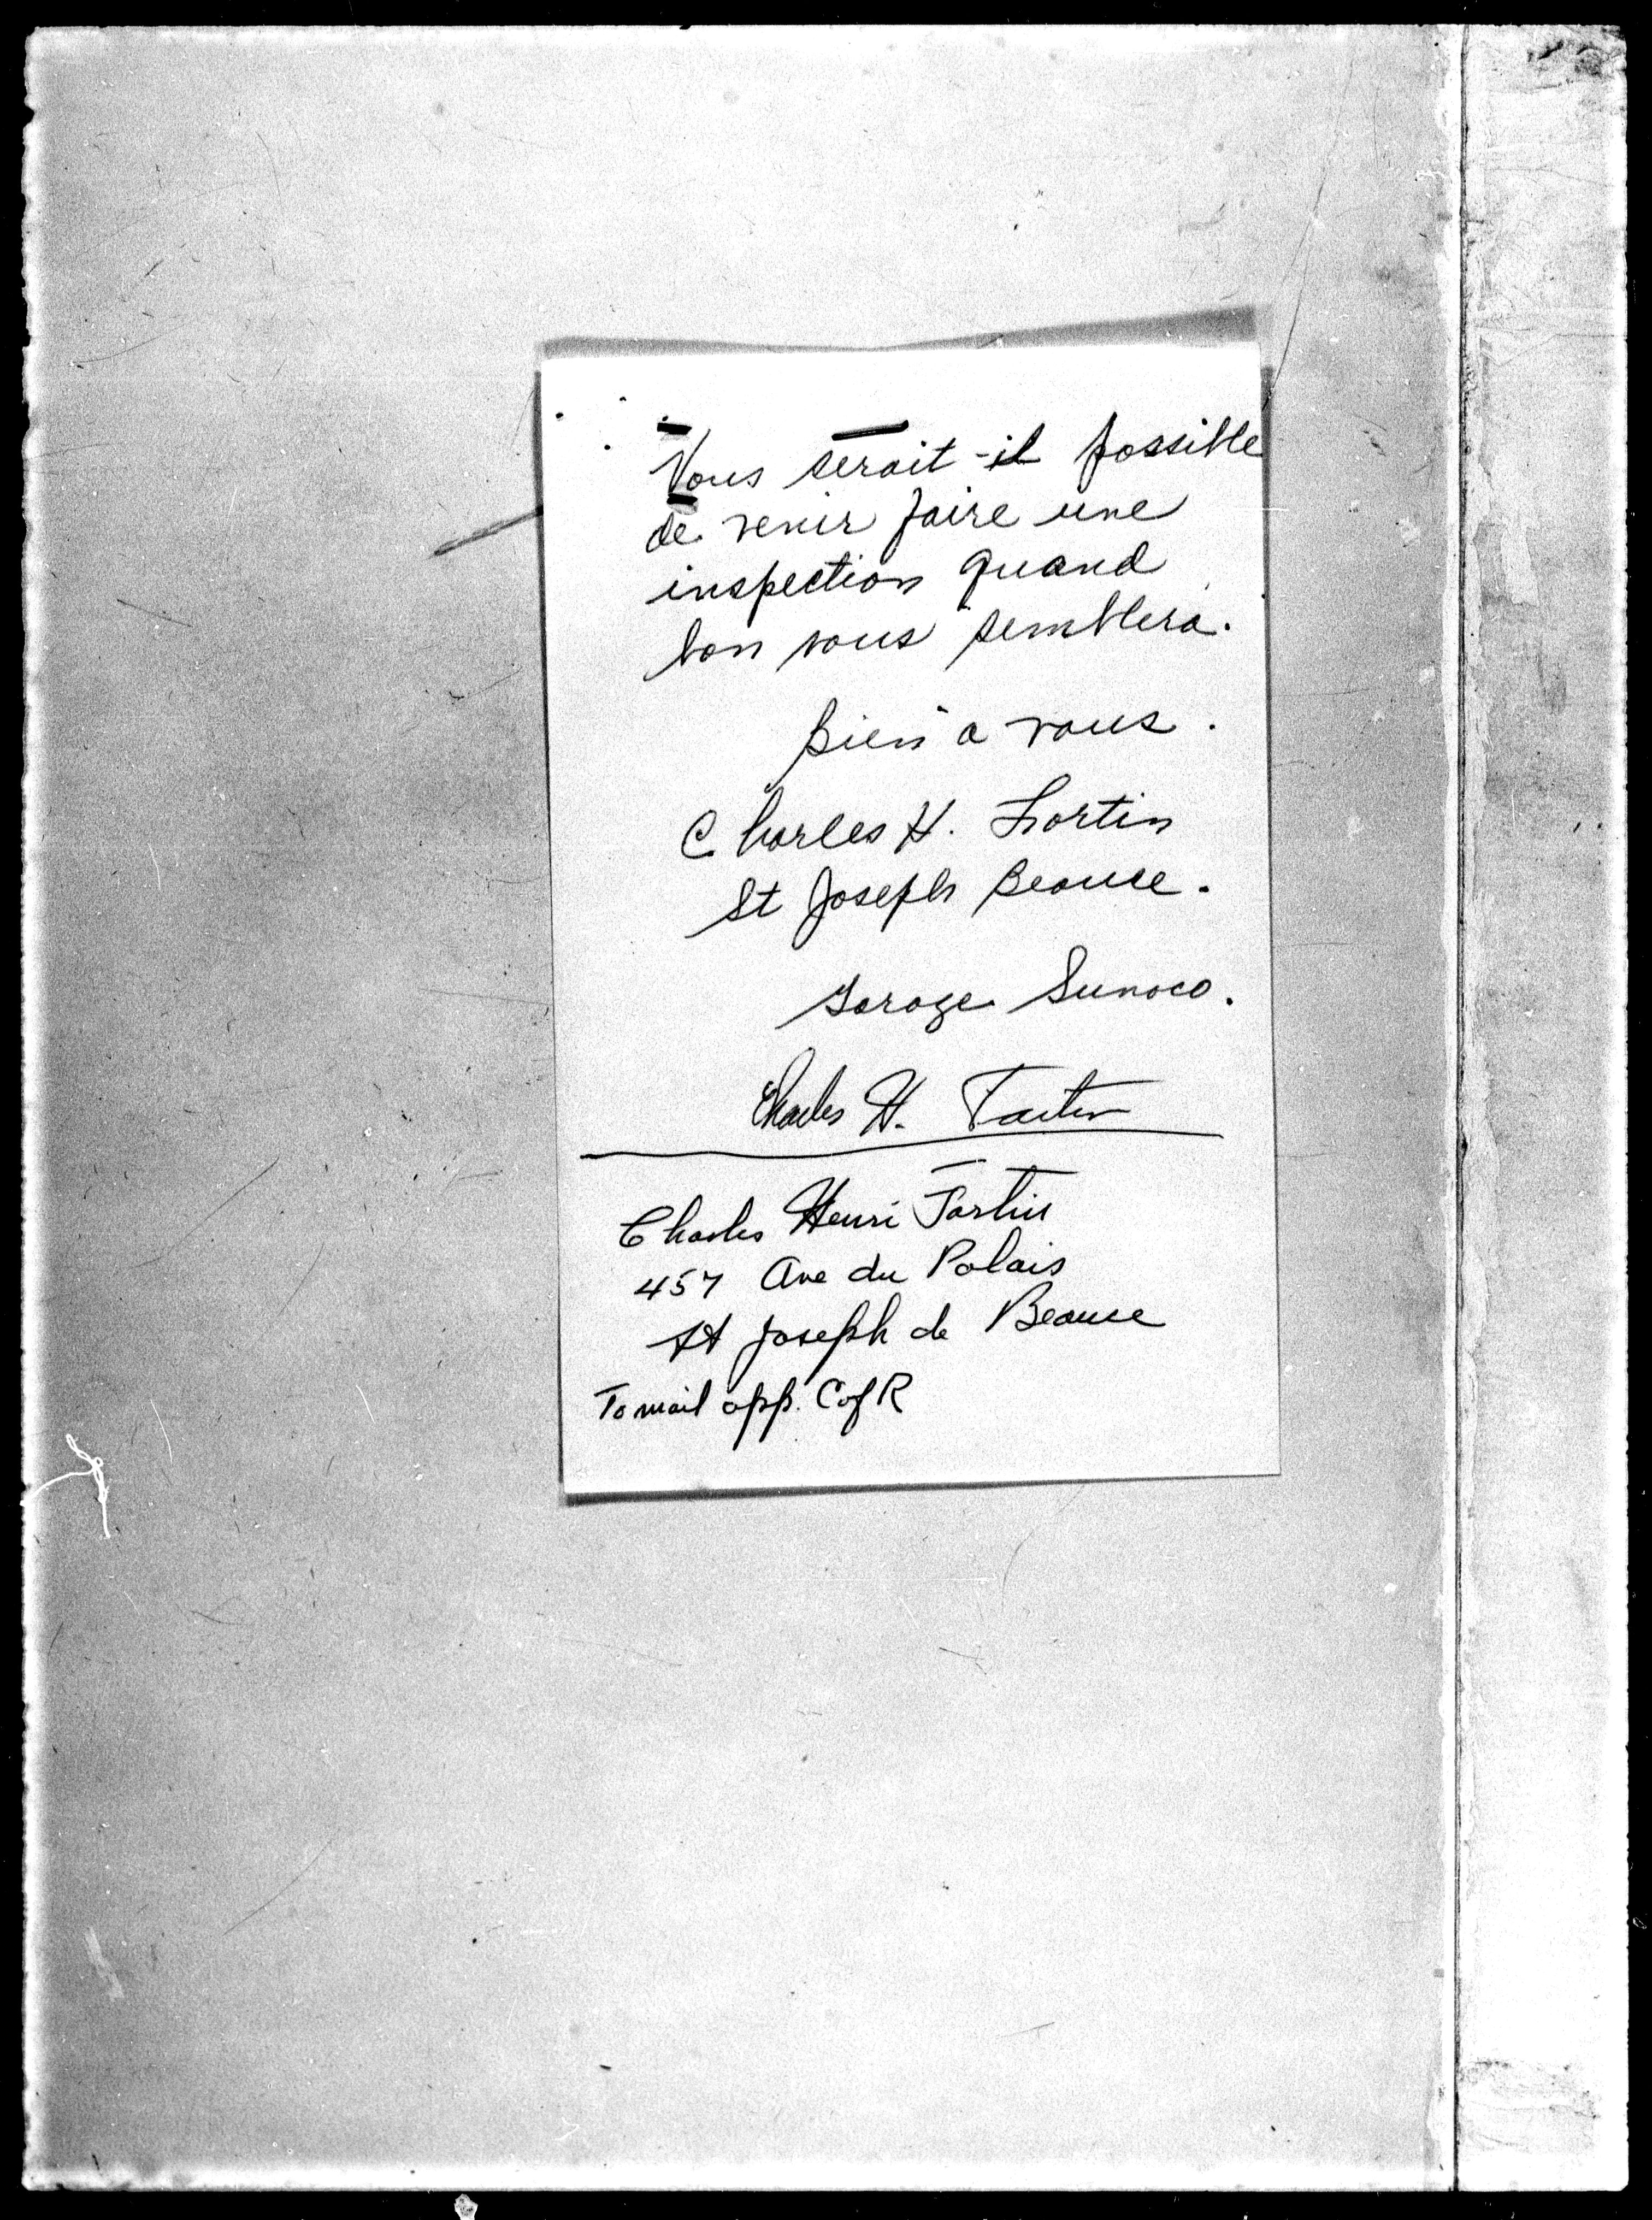 Vous serait-il possible
de venir faire une
inspection quand
bon vous semblera.
Bien à vous.
Charles H. Fortin
St Joseph Beauce.
Garage Sunoco.
Charles H. Fortin
Charles Henri Fortin
457 Ave du Palais
St Joseph de Beauce
To mail app. C of R